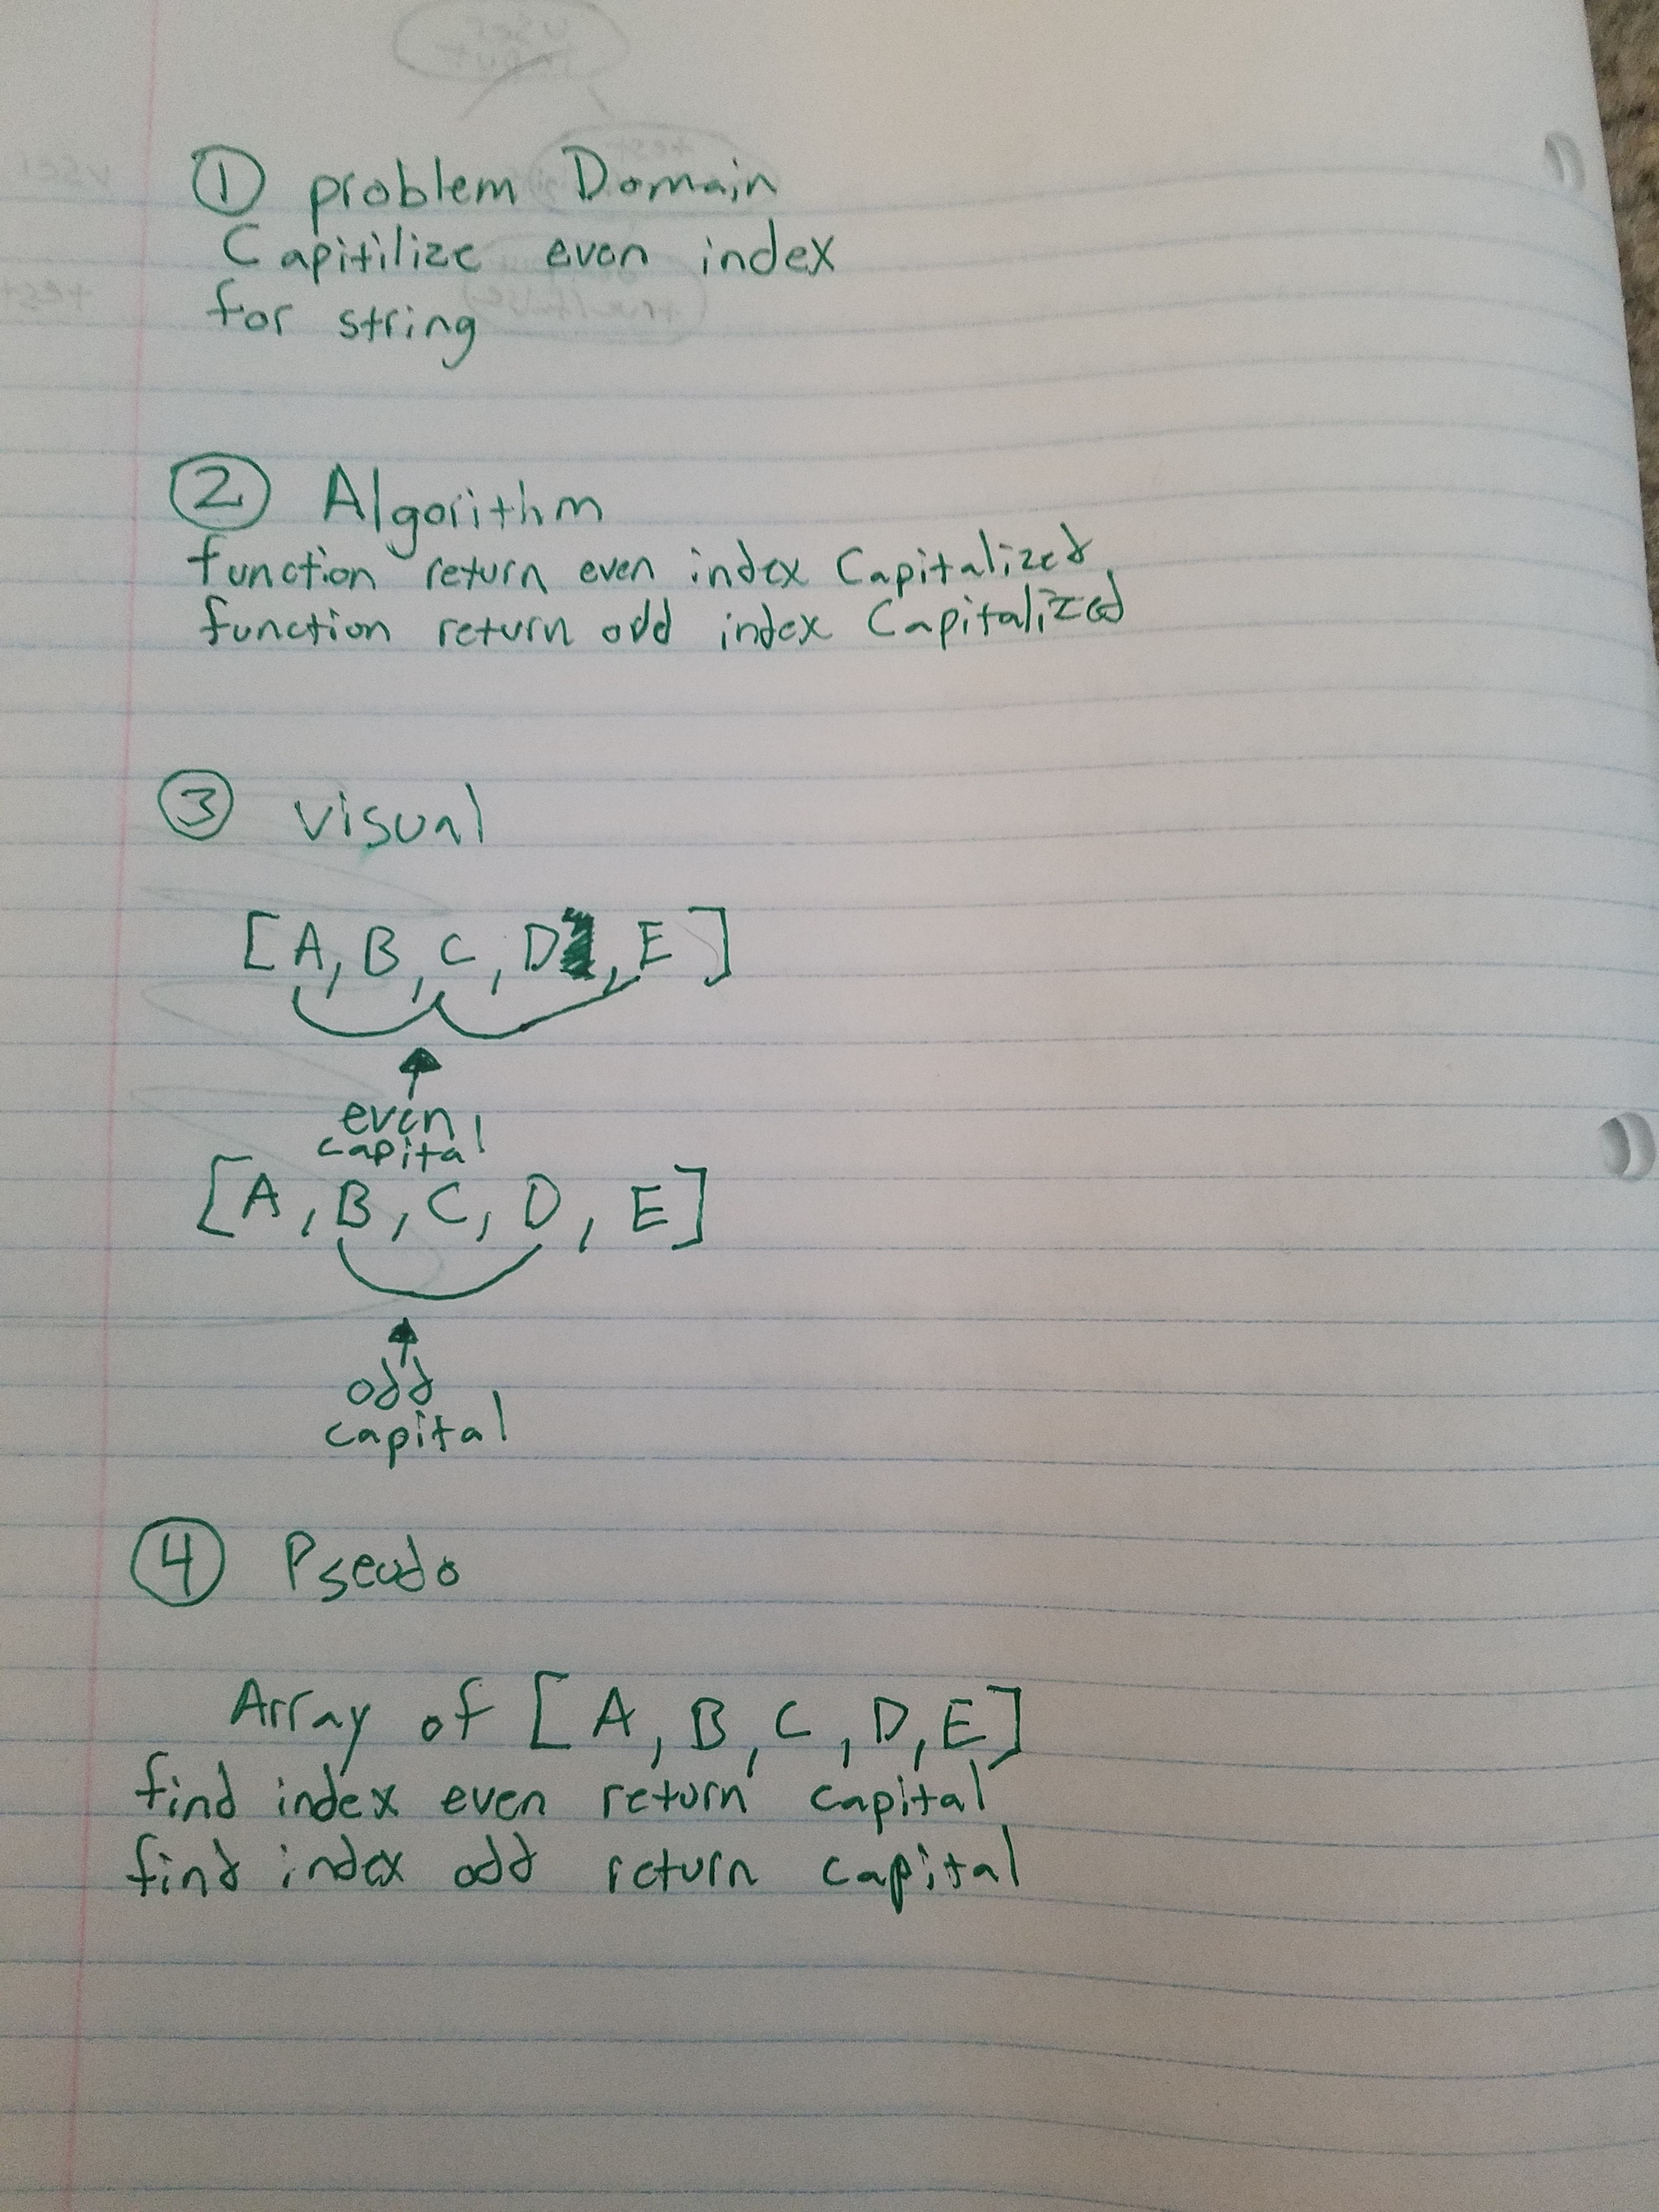 ① problem Domain
Capitilize even index
for string
② Algorithm
function return even index Capitalized
function return odd index Capitalized
③ visual
[A, B, C, D, E]
even
capital
[A, B, C, D, E]
odd
capital
④ Pseudo
Array of [A, B, C, D, E]
find index even return capital
find index odd return capital